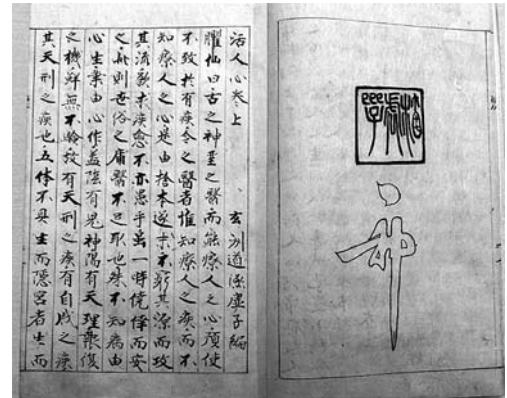 活人心卷上 玄洲道涵虛子編
臞仙曰古之神聖之醫而能療人之心預使
不致於有疾今之醫者惟知療人之疾而不
知療人之心是由捨本逐末不窮其源而攻
其流欲求疾愈不亦愚乎虽一時僥倖而安
之此則世俗之庸醫不足取也殊不知病由
心生業由心作蓋陰有鬼神陽有天理報復
之機鮮無不驗故有天刑之疾有自戍之疾
其天刑之疾也五体不具生而隱宮者生而